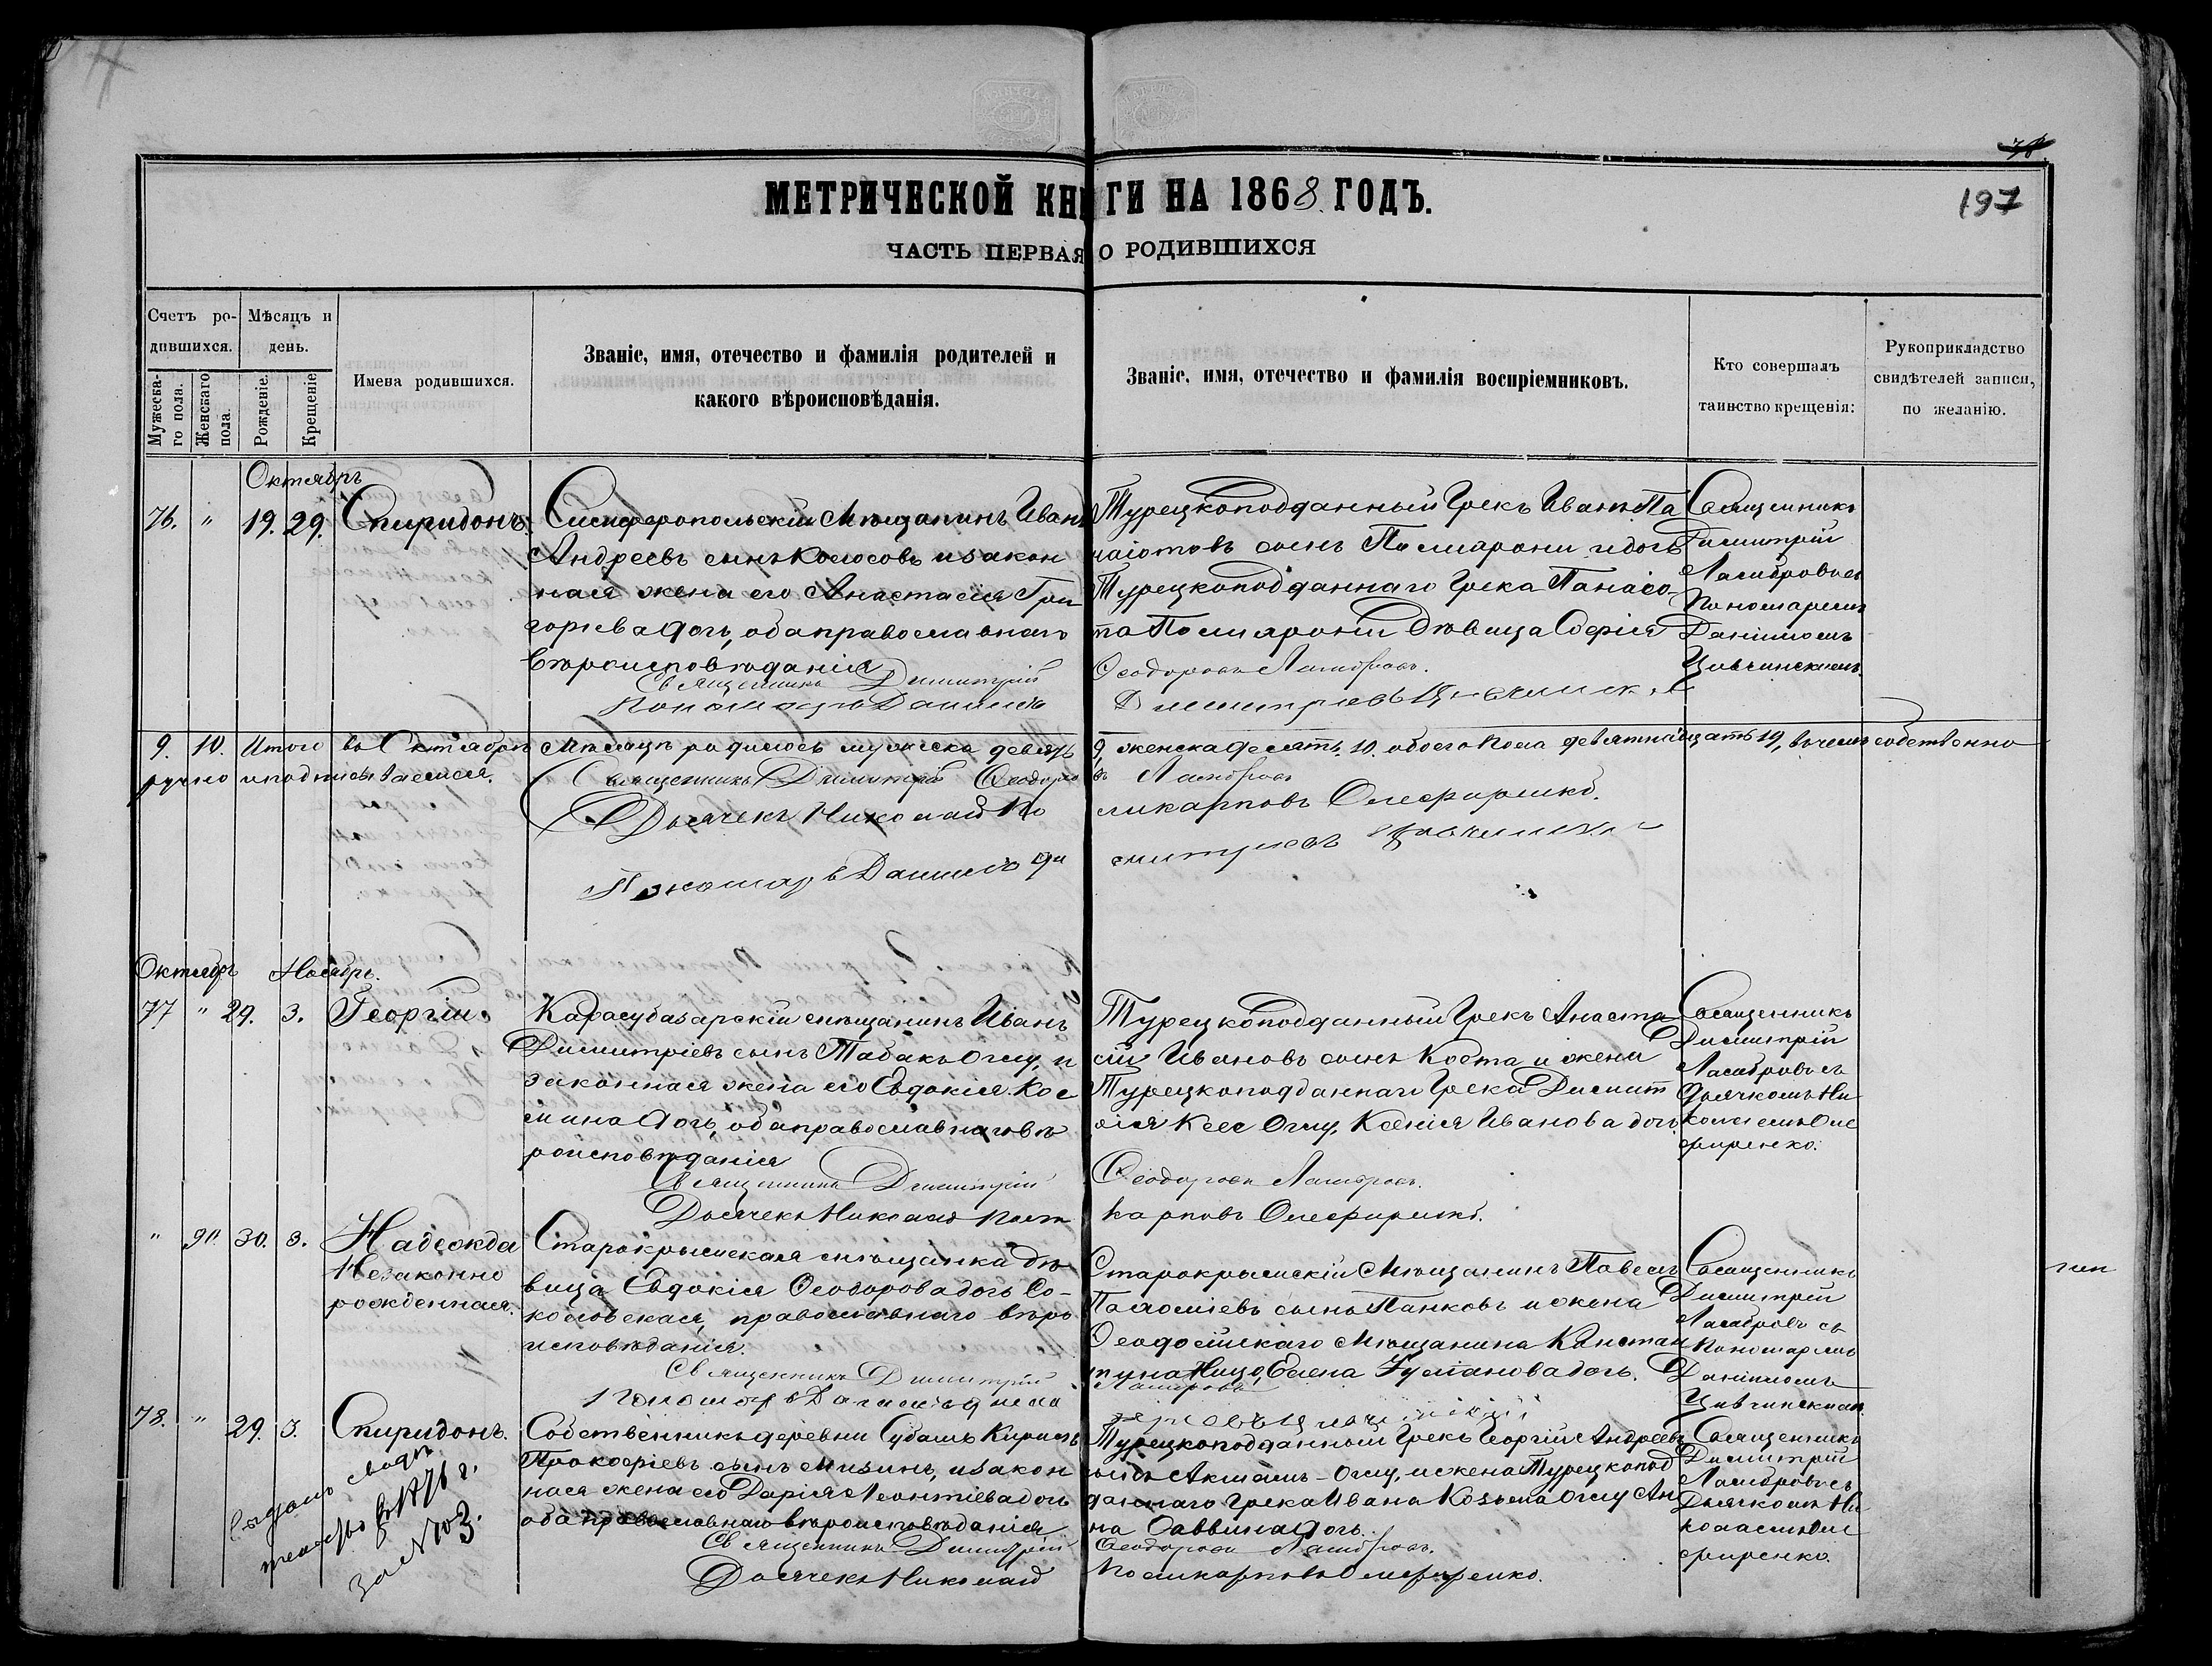 197
МЕТРИЧЕСКОЙ КНИГИ НА 1868 ГОДЪ.
ЧАСТЬ ПЕРВАЯ О РОДИВШИХСЯ
Счетъ родившихся.
Мужескаго пола.
Женскаго пола.
Мѣсяцъ и день.
Рожденіе.
Крещеніе.
Имена родившихся.
Званіе, имя, отечество и фамилія родителей и
какого вѣроисповѣданія.
Званіе, имя, отечество и фамилія воспріемниковъ.
Кто совершалъ
таинство крещенія:
Рукоприкладство
свидѣтелей записи,
по желанію.
Октябрь
76. " 19. 29. Спиридонъ.
Симферопольскій Мѣщанинъ Иванъ
Андреевъ сынъ Колосовъ и закон
ная жена его Анастасія Гри
горьева дочь, оба православнаго
вѣроисповѣданія
Священникъ Димитрій
Пономарь Даниилъ
Турецкоподданный Грекъ Иванъ Па
наіотовъ сынъ и дочь
Турецкоподданнаго Грека Панаіо
та дѣвица Софія
Ѳеодоровъ Ламбровъ.
Димитріевъ
Священникъ
Димитрій
Ламбровъ съ
Пономаремъ
Данииломъ
Цивчинскимъ.
9. 10. Итого въ Октябрѣ мѣсяцѣ родилось мужеска девять 9, женска десять 10. обоего пола девятнадцать 19, въ чемъ собственно
ручно и подписываемся.
Священникъ Димитрій Ѳеодоровъ Ламбровъ
Дьячекъ Николай Поликарповъ Олефиренко.
Пономарь Даниилъ Димитріевъ
Октябрь Ноябрь.
77 " 29. 3. Георгій.
Карасубазарскій мѣщанинъ Иванъ
Димитріевъ сынъ Табакъ Оглу, и
законная жена его Евдокія Кос
мина дочь, оба православнаго вѣ
роисповѣданія
Священникъ Димитрій
Дьячекъ Николай Поли
Турецкоподданный Грекъ Анаста
сій Ивановъ сынъ Коста и жена
Турецкоподданнаго Грека Димит
рія Кесе Оглу, Ксенія Иванова дочь.
Ѳеодоровъ Ламбровъ.
карповъ Олефиренко.
Священникъ
Димитрій
Ламбровъ съ
Дьячкомъ Ни
колаемъ Оле
фиренко.
" 91. 30. 3. Надежда
Незаконно
рожденная.
Старокрымская мѣщанка дѣ
вица Евдокія Ѳеодорова дочь Со-
коловская, православнаго вѣро
исповѣданія.
Священникъ Димитрій
Пономарь Даниилъ
Старокрымскій Мѣщанинъ Павелъ
сынъ Панковъ и жена
Ѳеодосійскаго Мѣщанина Констан
тина Ницо, Елена Іуліанова дочь.
Ламбровъ
Священникъ
Димитрій
Ламбровъ съ
Пономаремъ
Данииломъ
Цивчинскимъ.
78. " 29. 3. Спиридонъ.
Выдано свидѣ
тельство въ 1876 г.
за № 103.
Собственникъ деревни Субашъ Кирилъ
Прокофіевъ сынъ Мизинъ, и закон
ная жена его Дарія Леонтіева дочь
оба православнаго вѣроисповѣданія
Священникъ Димитрій
Дьячекъ Николай
Турецкоподданный Грекъ Георгій Андреевъ
сынъ Акшамъ-Оглу, и жена Турецкопод
даннаго Грека Ивана Козьма Оглу Ан
на Саввина дочь.
Ѳеодоровъ Ламбровъ.
Поликарповъ Олефиренко.
Священникъ
Димитрій
Ламбровъ съ
Дьячкомъ Ни
колаемъ Оле
фиренко.